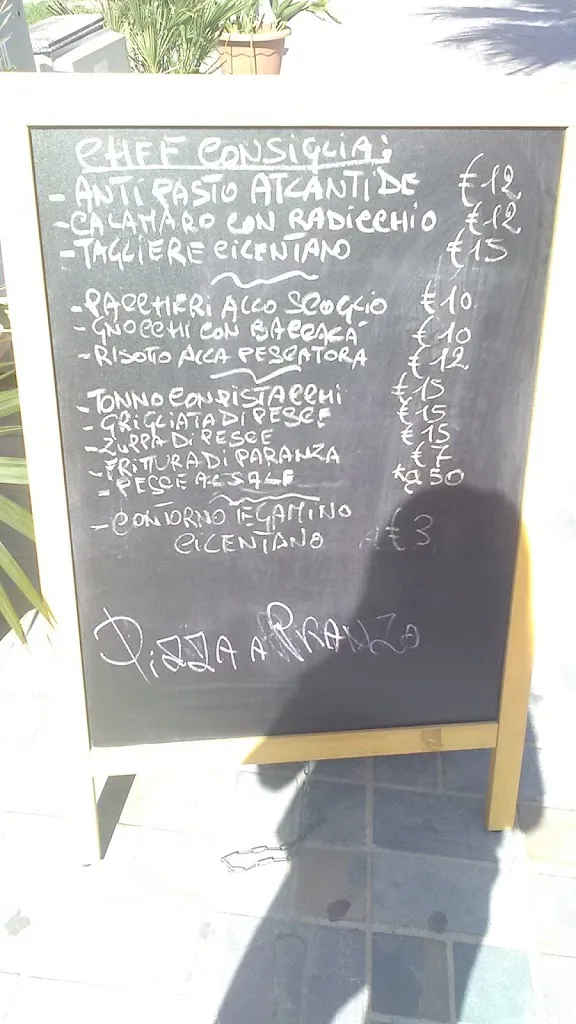 CHEF CONSIGLIA:
- ANTIPASTO ATLANTIDE €12
- CALAMARO CON RADICCHIO €12
- TAGLIERE CILENTANO €15
- PACCHERI ALLO SCOGLIO €10
- GNOCCHI CON BACCALÀ €10
- RISOTO ALLA PESCATORA €12
- TONNO CON PISTACCHI €15
- GRIGLIATA DI PESCE €15
- ZUPPA DI PESCE €15
- FRITTURA DI PARANZA €7
- PESCE AL SALE kg 50
- CONTORNO TEGAMINO
CILENTANO €3
PIZZA A PRANZO